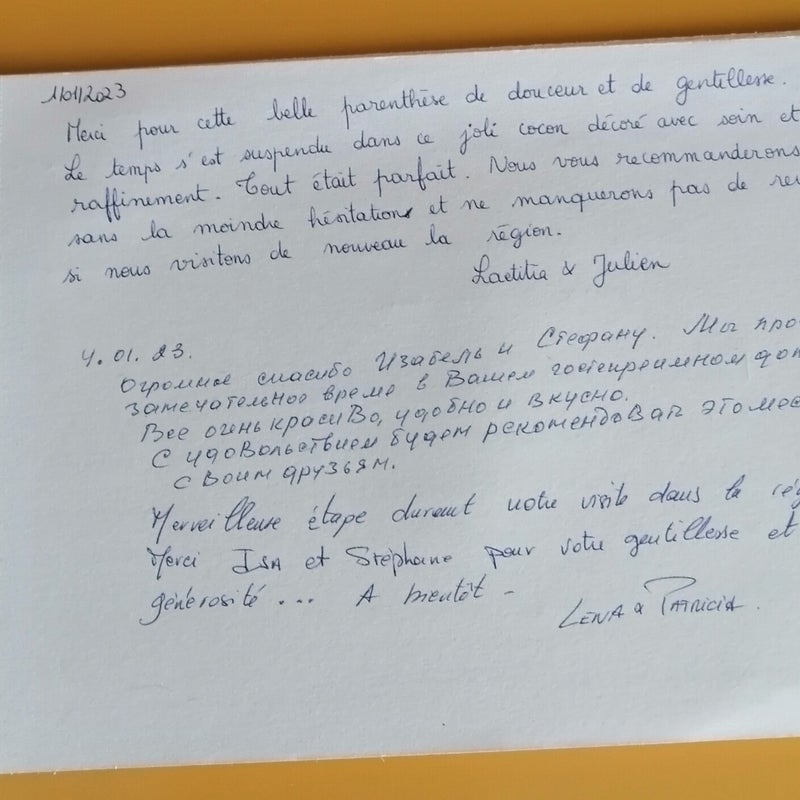 1/01/2023
Merci pour cette belle parenthèse de douceur et de gentillesse.
Le temps s'est suspendu dans ce joli cocon décoré avec soin et
raffinement. Tout était parfait. Nous vous recommanderons
sans la moindre hésitation et ne manquerons pas de
si nous visitons de nouveau la région.
Laetitia & Julien
4.01.23.
Огромное спасибо Изабель и Стефану. Мы
замечательное время в Вашем гостеприимном
Все очень красиво, удобно и вкусно.
С удовольствием будем рекомендовать это
своим друзьям.
Merveilleuse étape durant notre visite dans la
Merci ISA et Stéphane pour votre gentillesse et
générosité ... A bientôt -
LENA & PATRICIA.